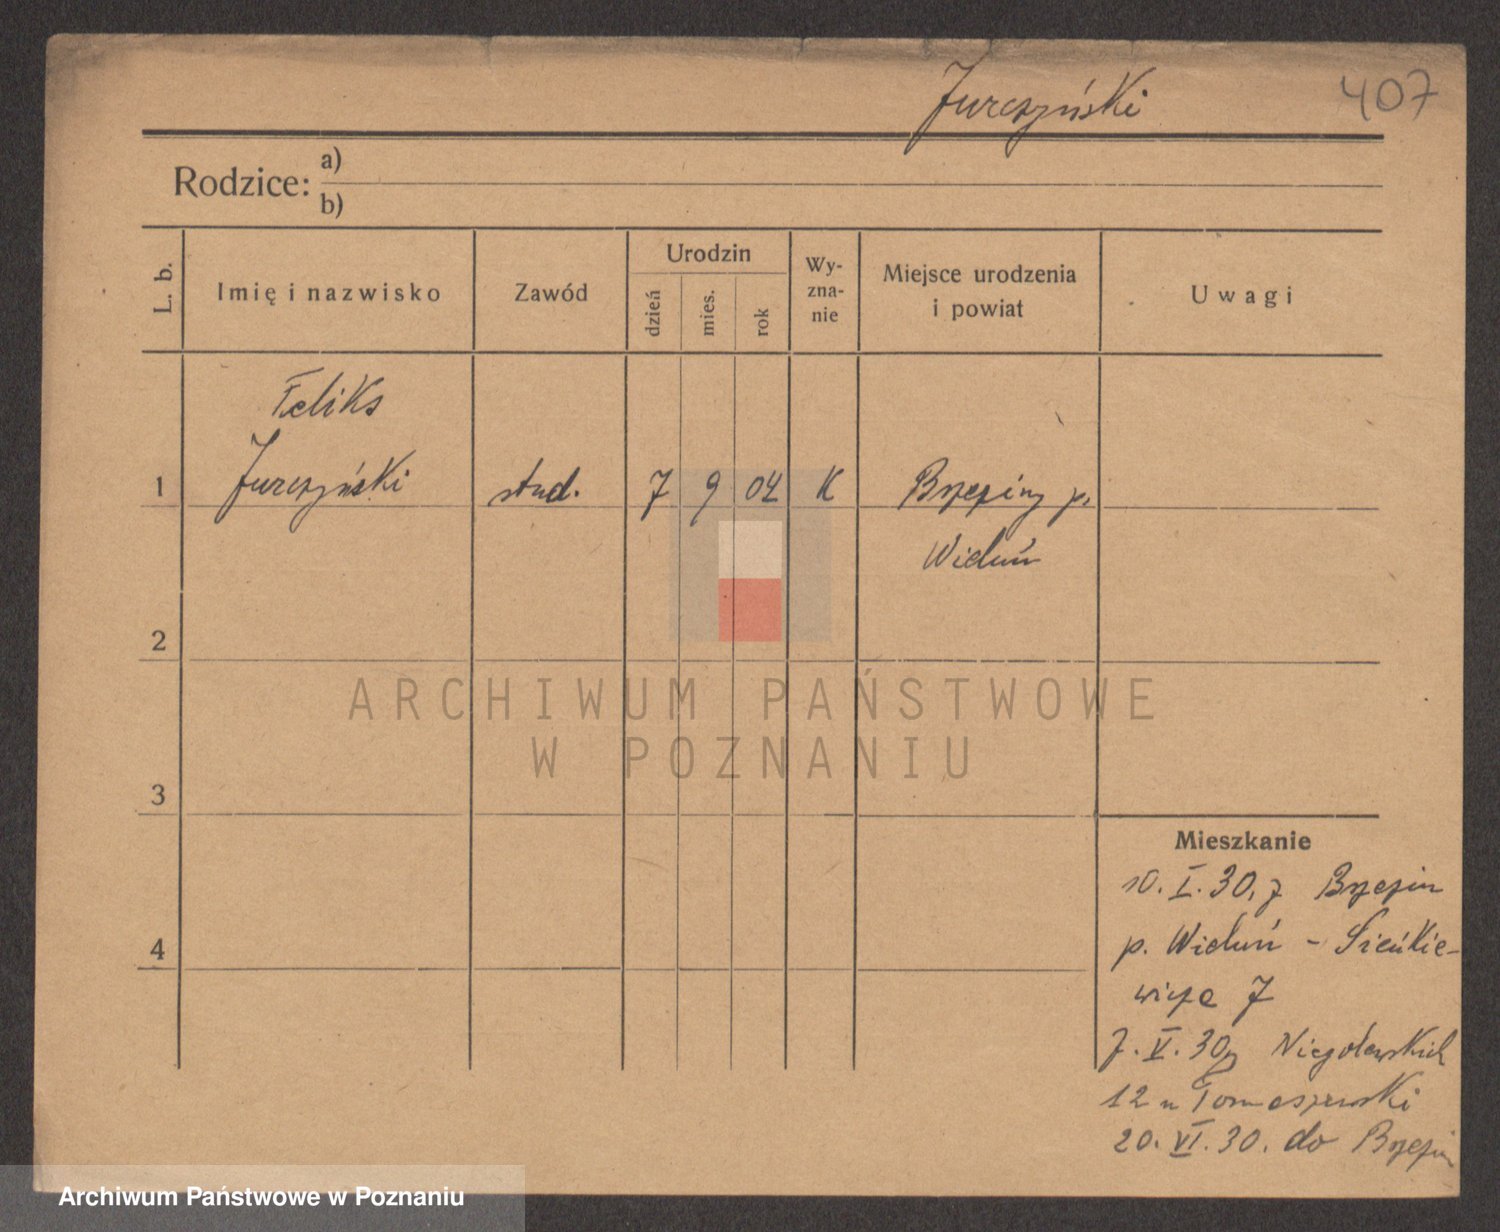 Jurczyński 407
Rodzice: a)
b)
L. b.
Imię i nazwisko
Zawód
Urodzin
dzień
mies.
rok
Wy-
zna-
nie
Miejsce urodzenia
i powiat
Uwagi
Feliks
1 Jurczyński stud. 7 9 04 K Brzeziny p.
Wieluń
2
ARCHIWUM PAŃSTWOWE
W POZNANIU
3
Mieszkanie
10. I. 30. z Brzezin
p. Wieluń - Sieńkie-
4
wicza 7
7. V. 30 Niegolewskich
12 u Tomaszewski
20. VI. 30. do Brzezin
Archiwum Państwowe w Poznaniu